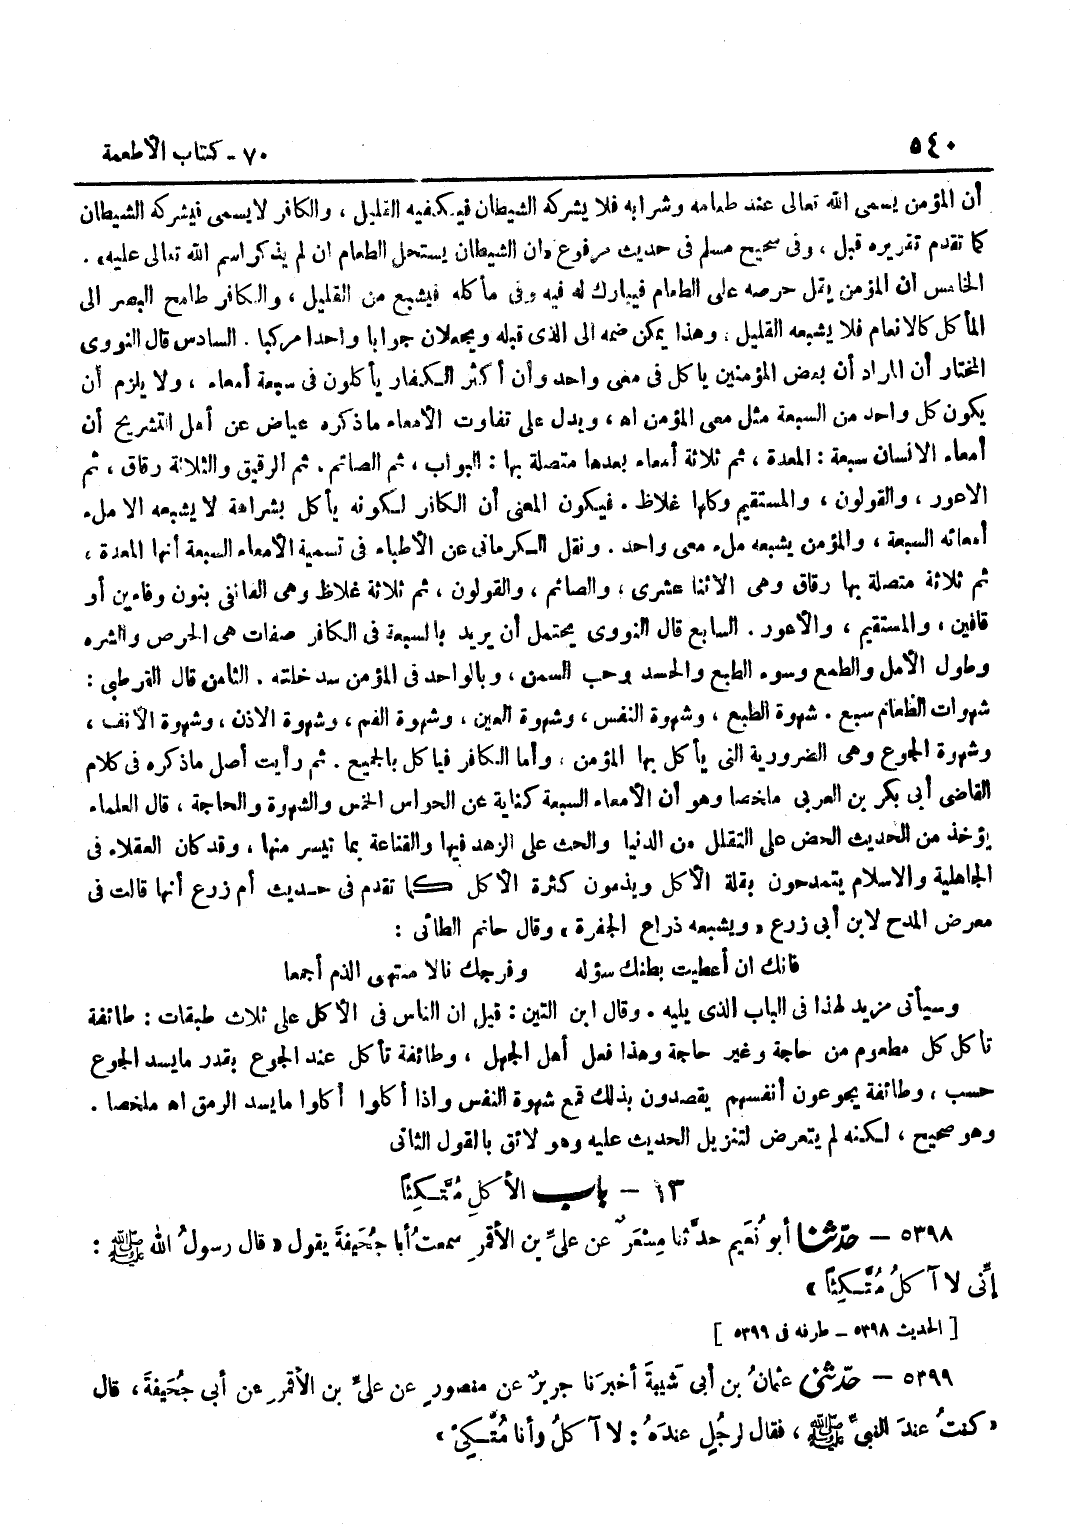 ٥٤٠
٧٠ - كتاب الأطعمة
أن المؤمن يسمى الله تعالى عند طعامه وشرابه فلا يشركه الشيطان فيكفيه القليل ، والكافر لا يسمى فيشركه الشيطان
كما تقدم تقريره قبل ، وفى صحيح مسلم فى حديث مرفوع «ان الشيطان يستحل الطعام ان لم يذكر اسم الله تعالى عليه» .
الخامس أن المؤمن يقل حرصه على الطعام فيبارك له فيه وفى مأكله فيشبع من القليل ، والكافر طامح البصر الى
المأكل كالانعام فلا يشبعه القليل ، وهذا يمكن ضمه الى الذى قبله ويجعلان جوابا واحدا مركبا . السادس قال النووى
المختار أن المراد أن بعض المؤمنين يأكل فى معى واحد وأن أكثر الكفار يأكلون فى سبعة أمعاء ، ولا يلزم أن
يكون كل واحد من السبعة مثل معى المؤمن اه ، ويدل على تفاوت الأمعاء ما ذكره عياض عن أهل التشريح أن
أمعاء الانسان سبعة : المعدة ، ثم ثلاثة أمعاء بعدها متصلة بها : البواب ، ثم الصائم . ثم الرقيق والثلاثة رقاق ، ثم
الاعور ، والقولون ، والمستقيم وكلها غلاظ . فيكون المعنى أن الكافر لكونه يأكل بشراهة لا يشبعه الا ملء
أمعائه السبعة ، والمؤمن يشبعه ملء معى واحد . ونقل الكرمانى عن الأطباء فى تسمية الأمعاء السبعة أنها المعدة ،
ثم ثلاثة متصلة بها رقاق وهى الاثنا عشرى ، والصائم ، والقولون ، ثم ثلاثة غلاظ وهى الفانفى بنون وفاءين أو
قافين ، والمستقيم ، والأعور . السابع قال النووى يحتمل أن يريد بالسبعة فى الكافر صفات هى الحرص والشره
وطول الأمل والطمع وسوء الطبع والحسد وحب السمن ، وبالواحد فى المؤمن سد خلته . الثامن قال القرطبى :
شهوات الطعام سبع . شهوة الطبع ، وشهوة النفس ، وشهوة العين ، وشهوة الفم ، وشهوة الاذن ، وشهوة الأنف ،
وشهوة الجوع وهى الضرورية التى يأكل بها المؤمن ، وأما الكافر فيأكل بالجميع . ثم رأيت أصل ما ذكره فى كلام
القاضى أبى بكر بن العربى ملخصا وهو أن الأمعاء السبعة كناية عن الحواس الخمس والشهوة والحاجة ، قال العلماء
يؤخذ من الحديث الحض على التقلل من الدنيا والحث على الزهد فيها والقناعة بما تيسر منها ، وقد كان العقلاء فى
الجاهلية والاسلام يتمدحون بقلة الأكل ويذمون كثرة الأكل كما تقدم فى حديث أم زرع أنها قالت فى
معرض المدح لابن أبى زرع «ويشبعه ذراع الجفرة» وقال حاتم الطائى :
فانك ان أعطيت بطنك سؤله وفرجك نالا منتهى الذم أجمعا
وسيأتى مزيد لهذا فى الباب الذى يليه . وقال ابن التين : قيل ان الناس فى الأكل على ثلاث طبقات : طائفة
تأكل كل مطعوم من حاجة وغير حاجة وهذا فعل أهل الجهل ، وطائفة تأكل عند الجوع بقدر ما يسد الجوع
حسب ، وطائفة يجوعون أنفسهم يقصدون بذلك قمع شهوة النفس واذا أكلوا أكلوا ما يسد الرمق اه ملخصا .
وهو صحيح ، لكنه لم يتعرض لتنزيل الحديث عليه وهو لائق بالقول الثانى
١٣ - باب الأكلِ مُتَّكِئاً
٥٣٩٨ - حدّثنا أبو نُعَيم حدَّثنا مِسْعَرٌ عن علىِّ بن الأقمرِ سمعتُ أبا جُحَيفةَ يقول « قال رسولُ الله ﷺ :
إنِّى لا آكلُ مُتَّكِئاً »
[ الحديث ٥٣٩٨ - طرفه فى ٥٣٩٩ ]
٥٣٩٩ - حدّثنى عثمانُ بن أبى شَيبةَ أخبرَنا جريرٌ عن منصورٍ عن علىِّ بن الأقمرِ عن أبى جُحَيفةَ ، قال
« كنتُ عندَ النبىِّ ﷺ ، فقال لرجُلٍ عندَهُ : لا آكلُ وأنا مُتَّكِئٌ »